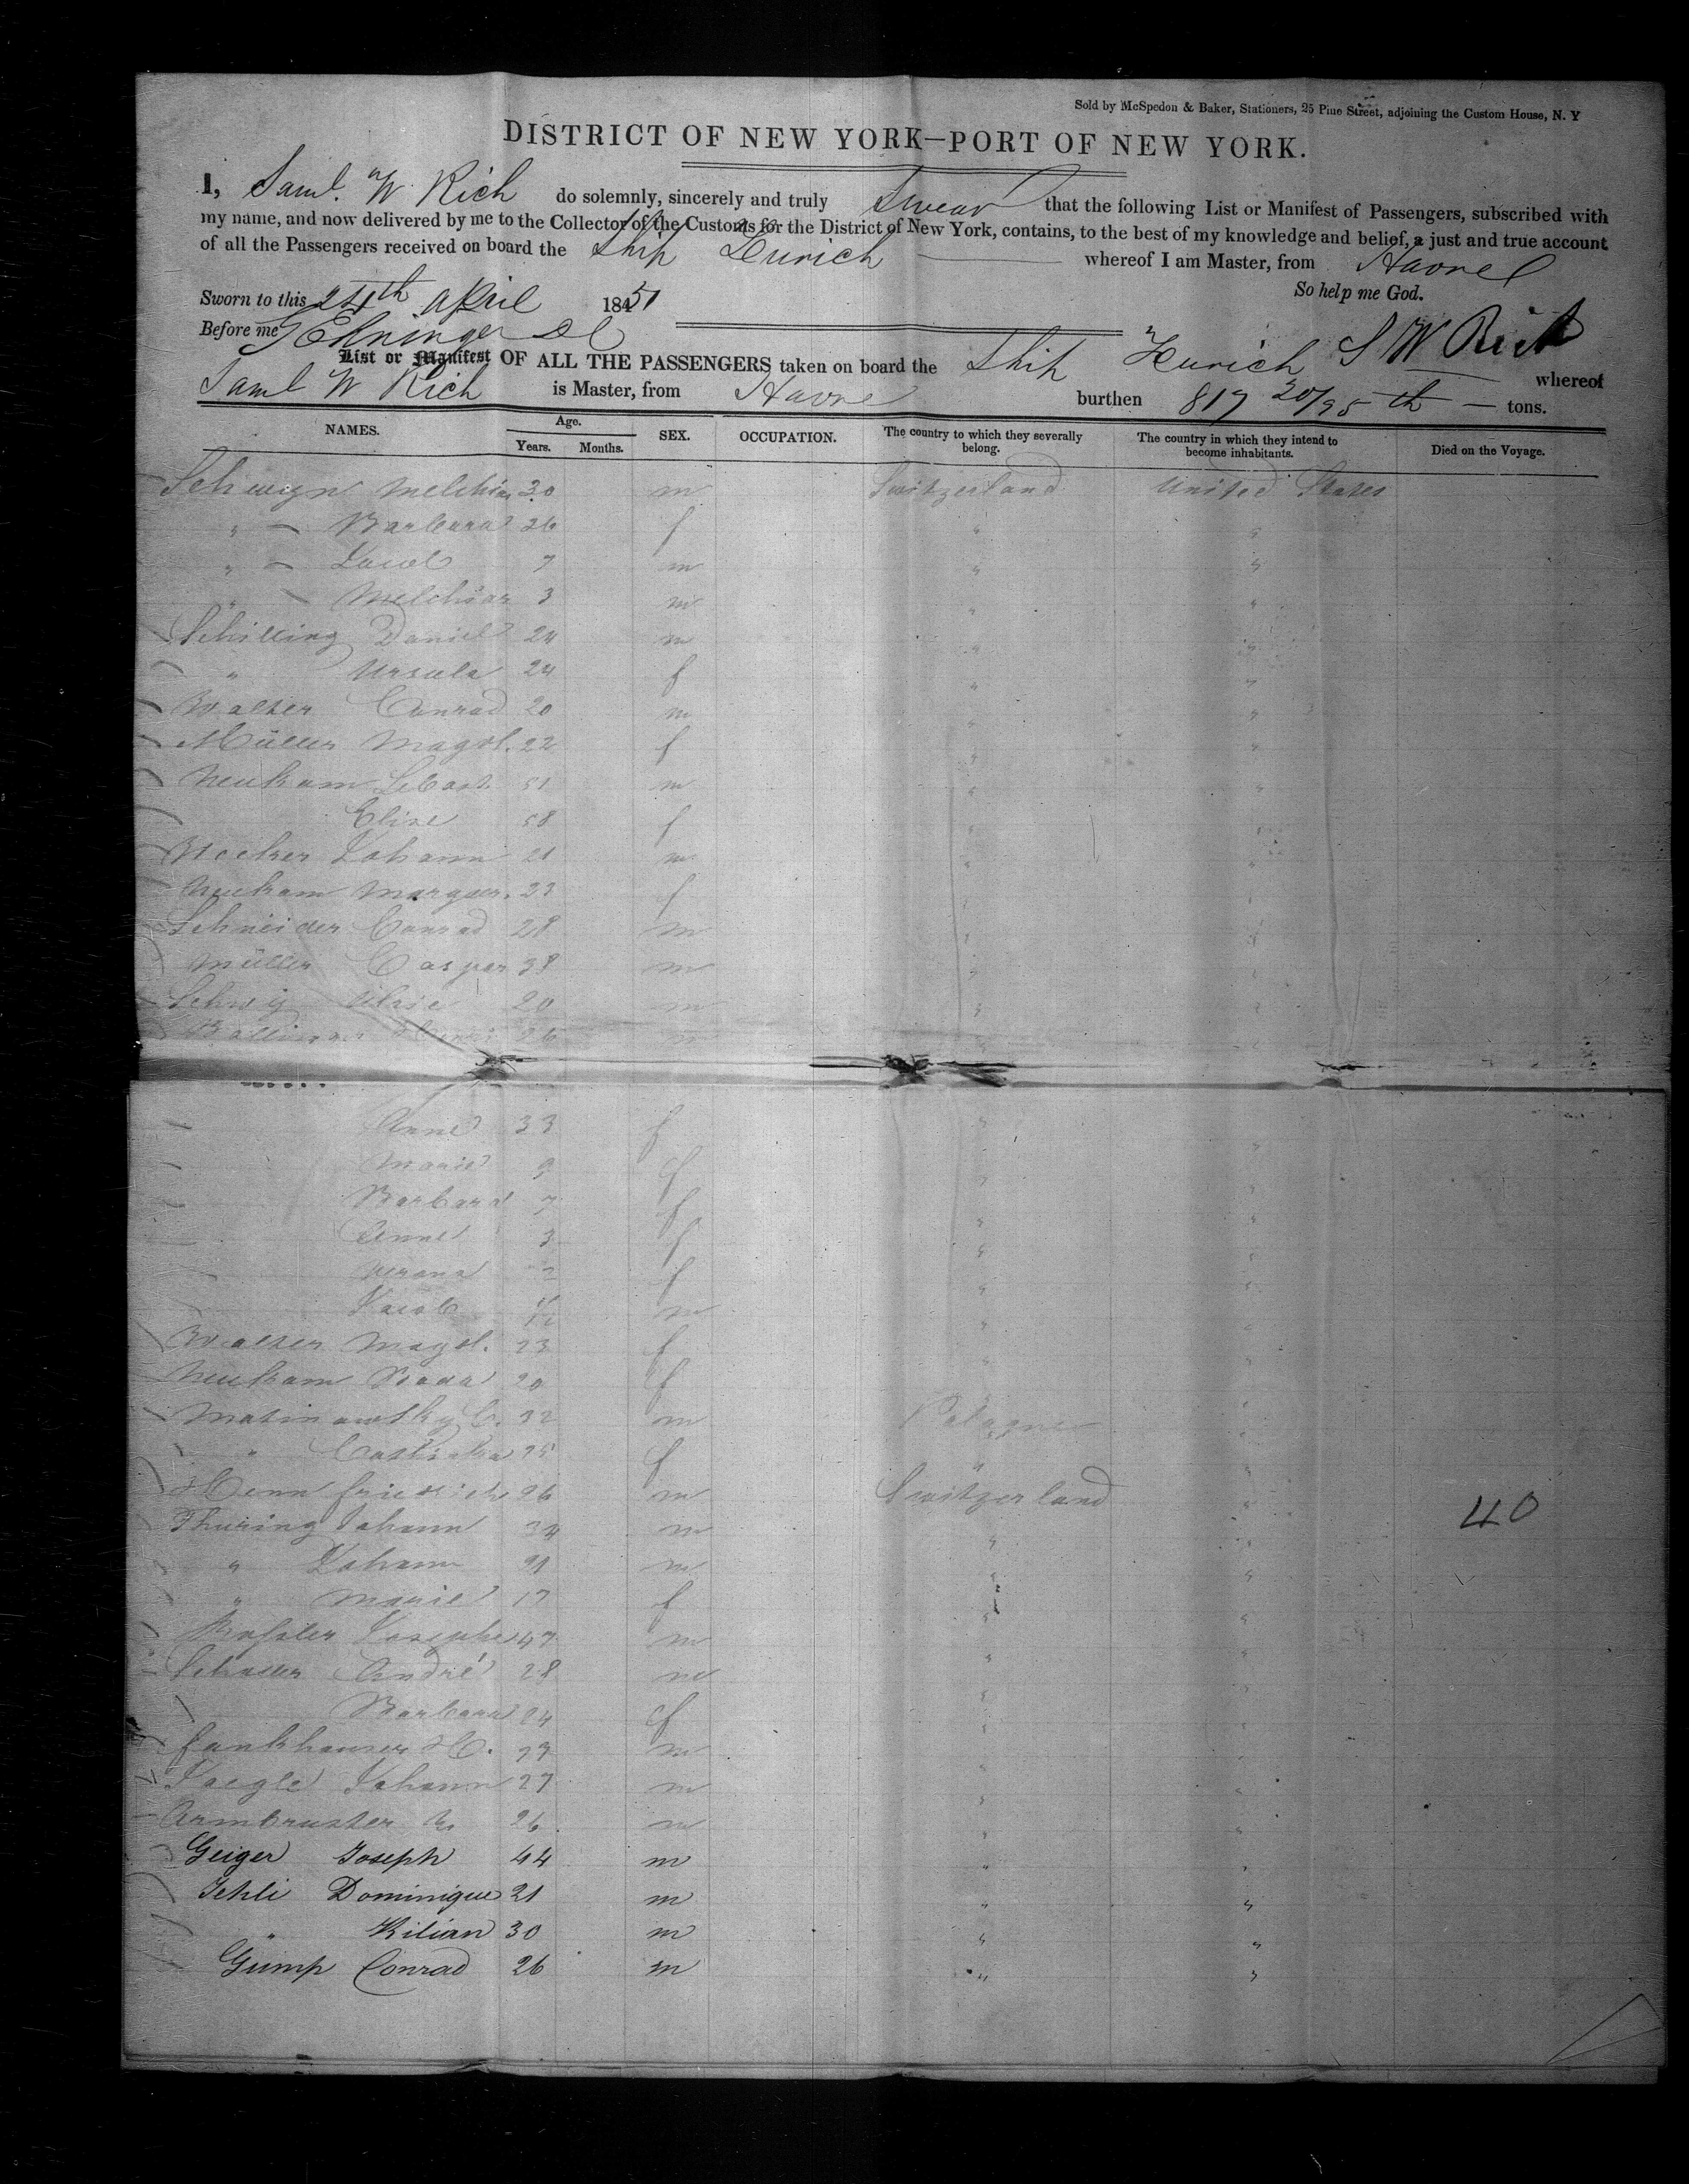 Sold by McSpedon & Baker, Stationers, 25 Pine Street, adjoining the Custom House, N. Y
DISTRICT OF NEW YORK—PORT OF NEW YORK.
I, Saml. W. Rich do solemnly, sincerely and truly Swear that the following List or Manifest of Passengers, subscribed with
my name, and now delivered by me to the Collector of the Customs for the District of New York, contains, to the best of my knowledge and belief, a just and true account
of all the Passengers received on board the Ship Zurich whereof I am Master, from Havre
So help me God.
Sworn to this 24th April 1851
Before me
S W Rich
List or Manifest OF ALL THE PASSENGERS taken on board the Ship Zurich whereof
Saml W Rich is Master, from Havre burthen 817 20/95 th tons.
NAMES. Age. Years. Months. SEX. OCCUPATION. The country to which they severally belong. The country in which they intend to become inhabitants. Died on the Voyage.
Melchior 30 m Switzerland United States
" Barbara 26 f " "
" Jacob 7 m " "
" Melchior 3 m " "
Schilling Daniel 24 m " "
" Ursula 24 f " "
Walser Conrad 20 m " "
Müller Magdl. 22 f " "
Neukam Sebast. 51 m " "
Elise 58 f " "
Johann 21 m " "
Neukam Margar. 23 f " "
Schneider Conrad 28 m " "
Müller Caspar 38 m " "
20 m " "
26 m " "
Anne 33 f " "
Marie 9 f " "
Barbara 7 f " "
Anne 3 f " "
Verena 2 f " "
Jacob m " "
Walser Magdl. 23 f " "
Neukam 20 f " "
C. 32 m Pologne "
" 25 f " "
Henn Friedrich 26 m Switzerland "
Thuring Johann 34 m " " 40
" Johann 21 m " "
" Marie 17 f " "
Joseph 47 m " "
André 28 m " "
Barbara 24 f " "
Fankhauser H. 27 m " "
Johann 27 m " "
Armbruster 26 m " "
Geiger Joseph 44 m " "
Jehli Dominique 21 m " "
" Kilian 30 m " "
Gump Conrad 26 m " "